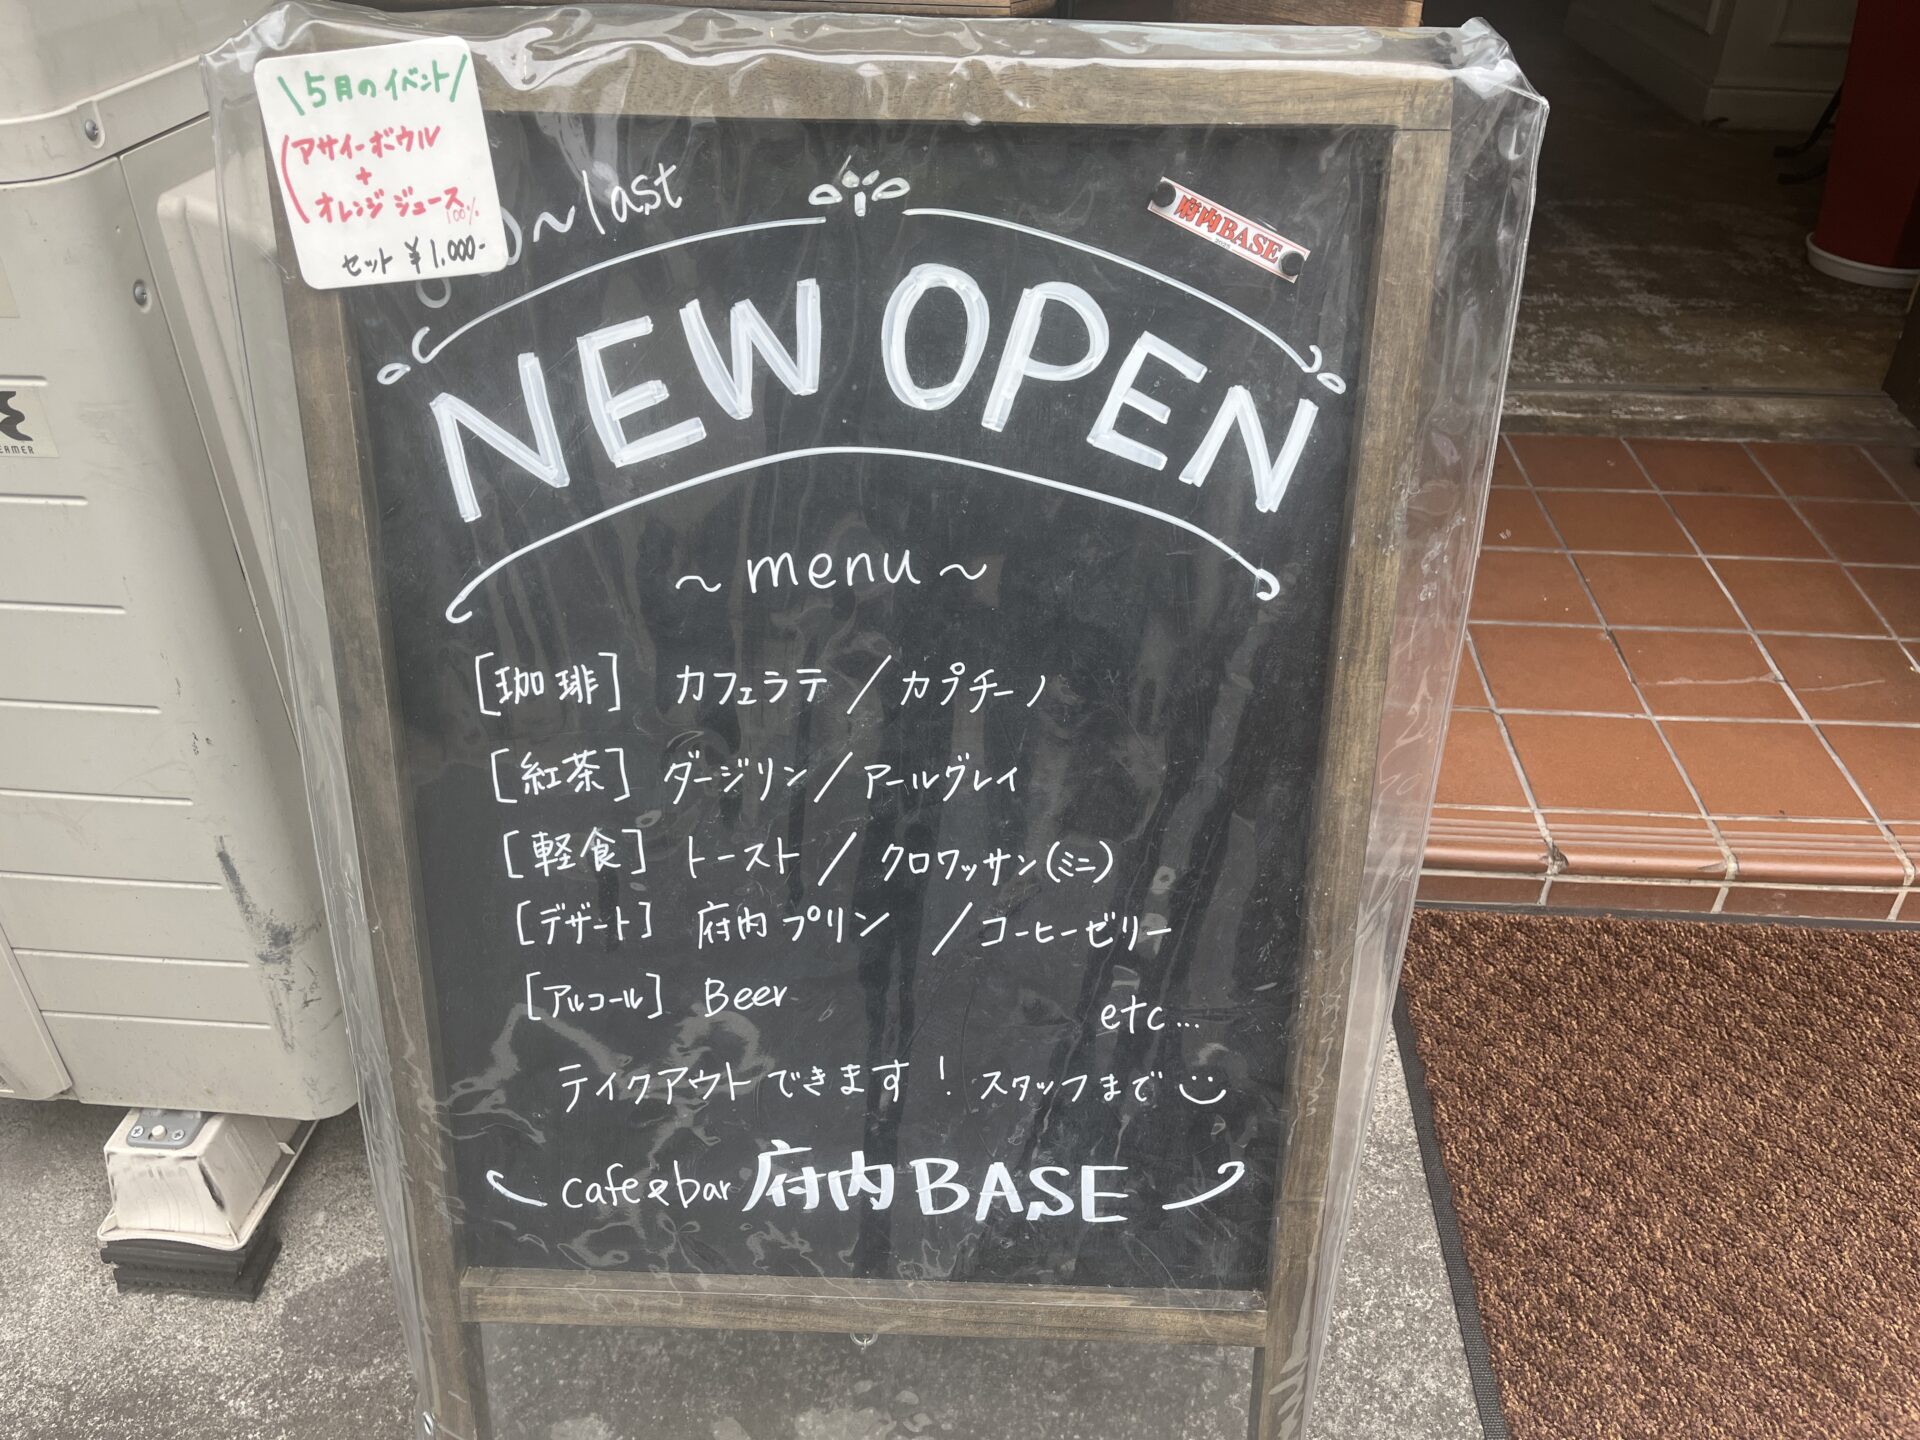 \5月のイベント/
アサイーボウル
+
オレンジジュース
100%
セット ¥1,000-
~last
府内BASE
2025
NEW OPEN
~menu~
[珈琲] カフェラテ/カプチーノ
[紅茶] ダージリン/アールグレイ
[軽食] トースト/クロワッサン(ミニ)
[デザート] 府内プリン/コーヒーゼリー
[アルコール] Beer
etc...
テイクアウトできます! スタッフまで
cafe&bar 府内BASE